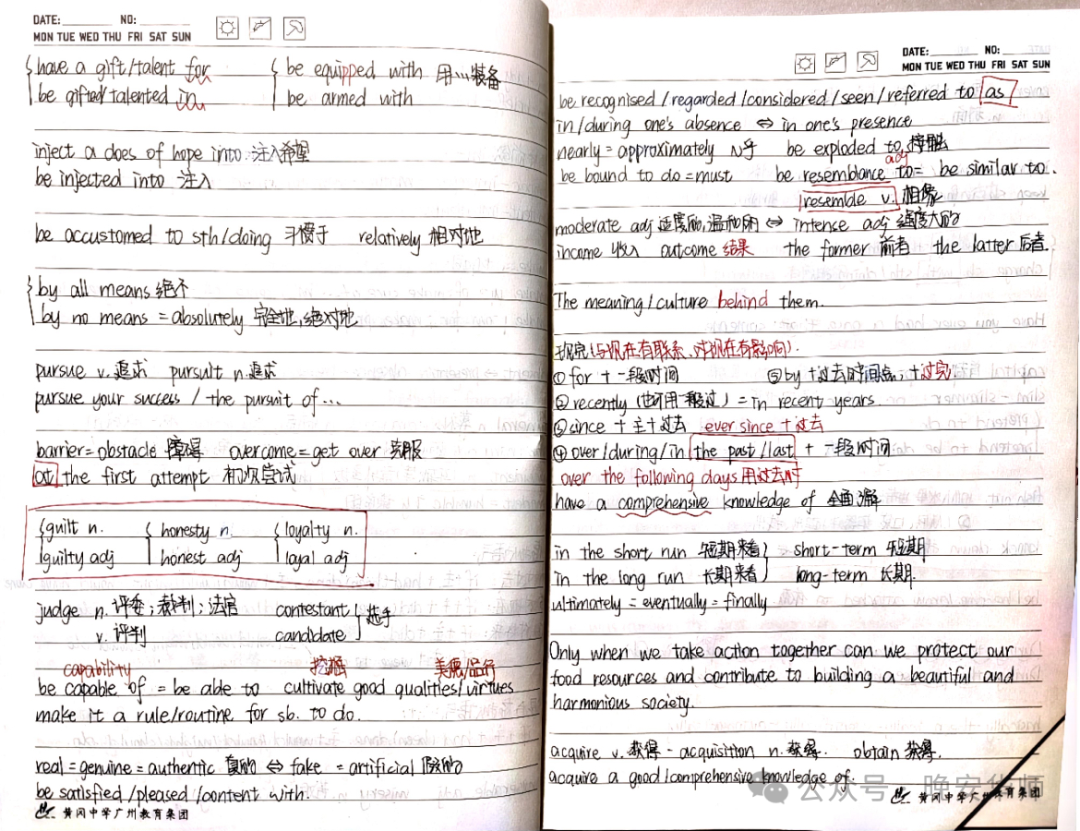 DATE: NO:
MON TUE WED THU FRI SAT SUN
have a gift/talent for
be gifted/talented in
be equipped with 用…装备
be armed with
inject a does of hope into 注入希望
be injected into 注入
be accustomed to sth/doing 习惯于 relatively 相对地
by all means 绝不
by no means = absolutely 完全地,绝对地
pursue v. 追求 pursuit n. 追求
pursue your success / the pursuit of …
barrier = obstacle 障碍 overcome = get over 克服
at the first attempt 初次尝试
guilt n. honesty n. loyalty n.
guilty adj honest adj loyal adj
judge n. 评委；裁判；法官
v. 评判
contestant
candidate 选手
capability 挖掘 美德/品行
be capable of = be able to cultivate good qualities/virtues
make it a rule/routine for sb. to do.
real = genuine = authentic 真的 ⇔ fake = artificial 假的
be satisfied /pleased /content with.
黄冈中学广州教育集团
DATE: NO:
MON TUE WED THU FRI SAT SUN
be recognised / regarded /considered /seen / referred to as
in/during one's absence ⇔ in one's presence
nearly = approximately 几乎 be exploded to 接触
adj
be bound to do = must be resemblance to = be similar to.
resemble v. 相像
moderate adj 适度的,温和的 ⇔ intense adj 强度大的
income 收入 outcome 结果 the former 前者 the latter 后者.
The meaning / culture behind them.
现完(与现在有联系,对现在有影响).
① for + 一段时间 ⑤ by + 过去时间点, + 过完
② recently (也可用一般过) = in recent years.
③ since + 主 + 过去 ever since + 过去
④ over/during/in the past/last + 一段时间
over the following days 用过去时
have a comprehensive knowledge of 全面了解
in the short run 短期来看 short-term 短期
in the long run 长期来看 long-term 长期.
ultimately = eventually = finally
Only when we take action together can we protect our
food resources and contribute to building a beautiful and
harmonious society.
acquire v. 获得 - acquisition n. 获得. obtain 获得.
acquire a good /comprehensive knowledge of.
公众号 · 晚安华师
黄冈中学广州教育集团